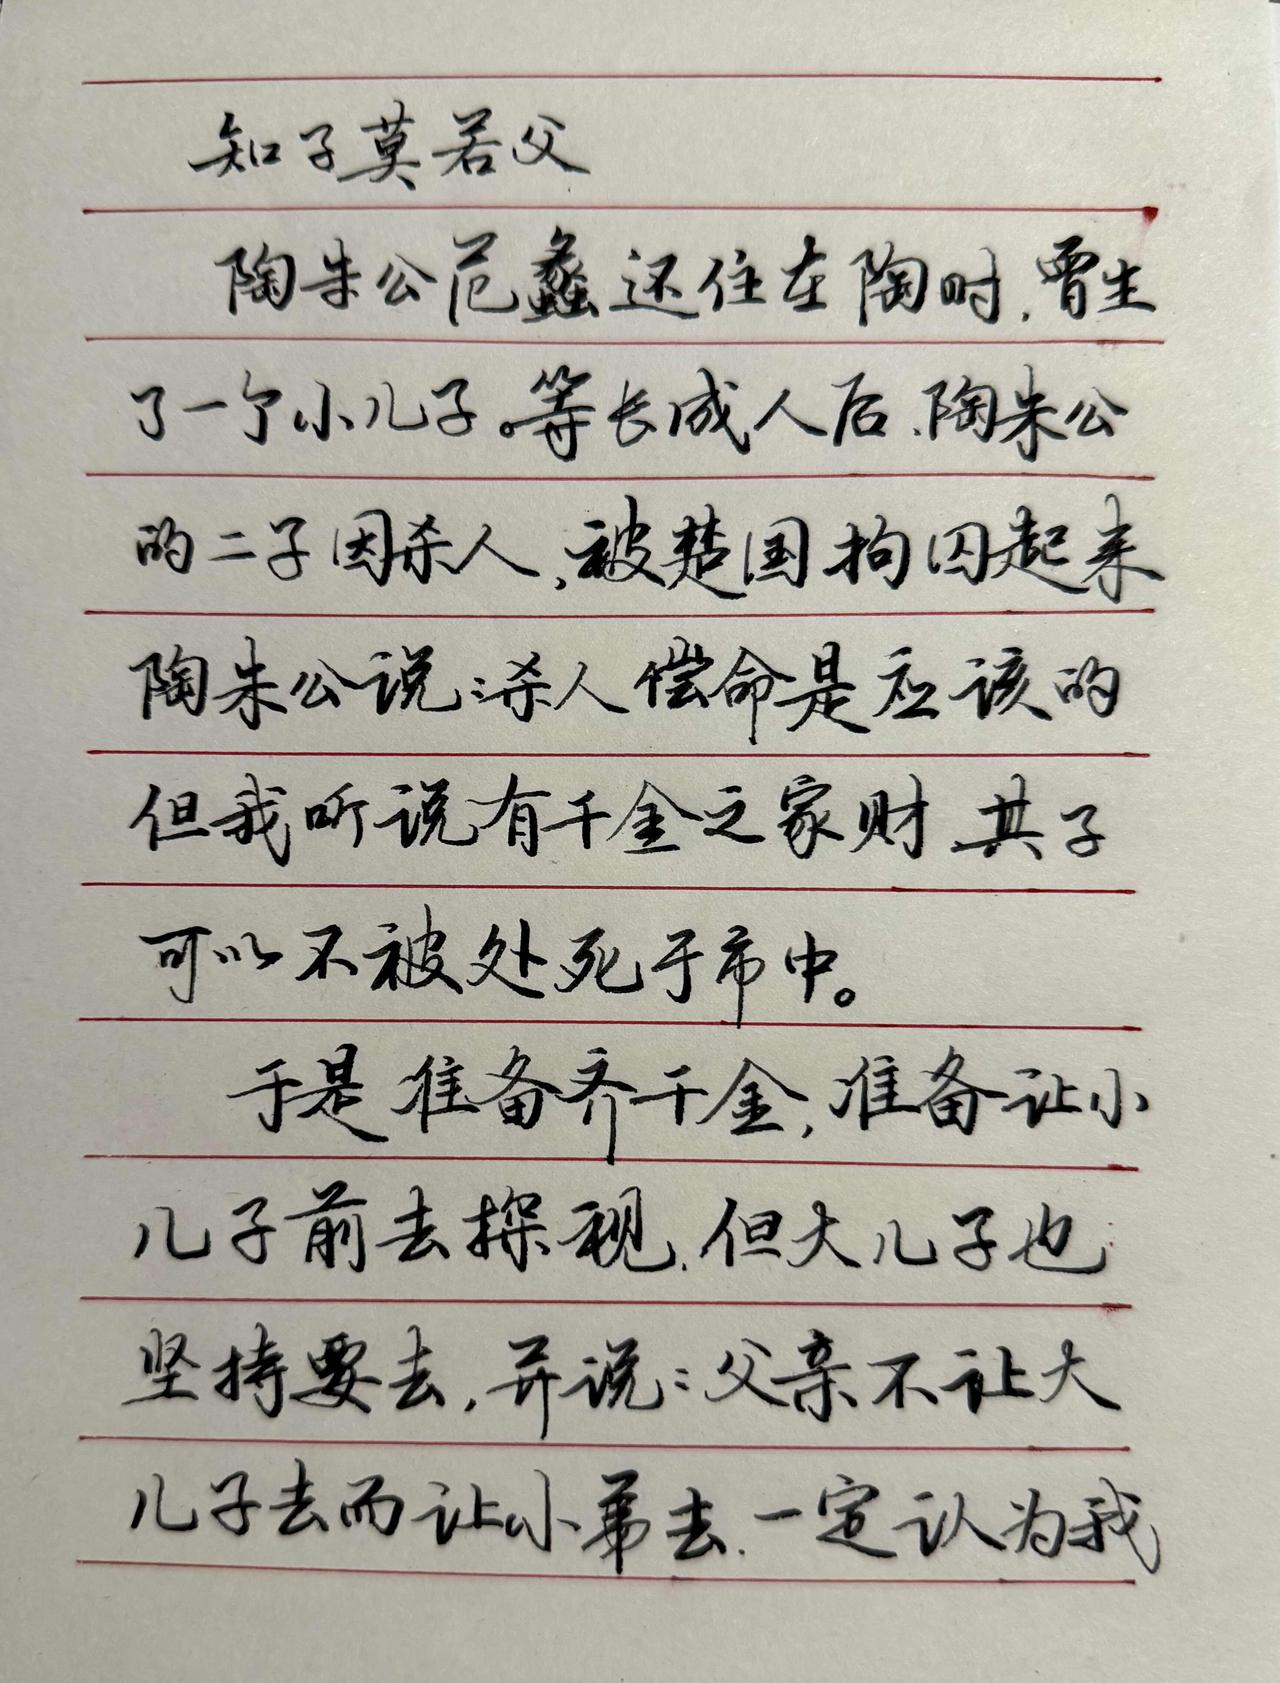 知子莫若父
陶朱公范蠡还住在陶时,曾生
了一个小儿子。等长成人后、陶朱公
的二子因杀人,被楚国拘囚起来
陶朱公说:杀人偿命是应该的
但我听说有千金之家财、其子
可以不被处死于市中。
于是准备齐千金,准备让小
儿子前去探视、但大儿子也
坚持要去,并说:父亲不让大
儿子去而让小弟去、一定认为我